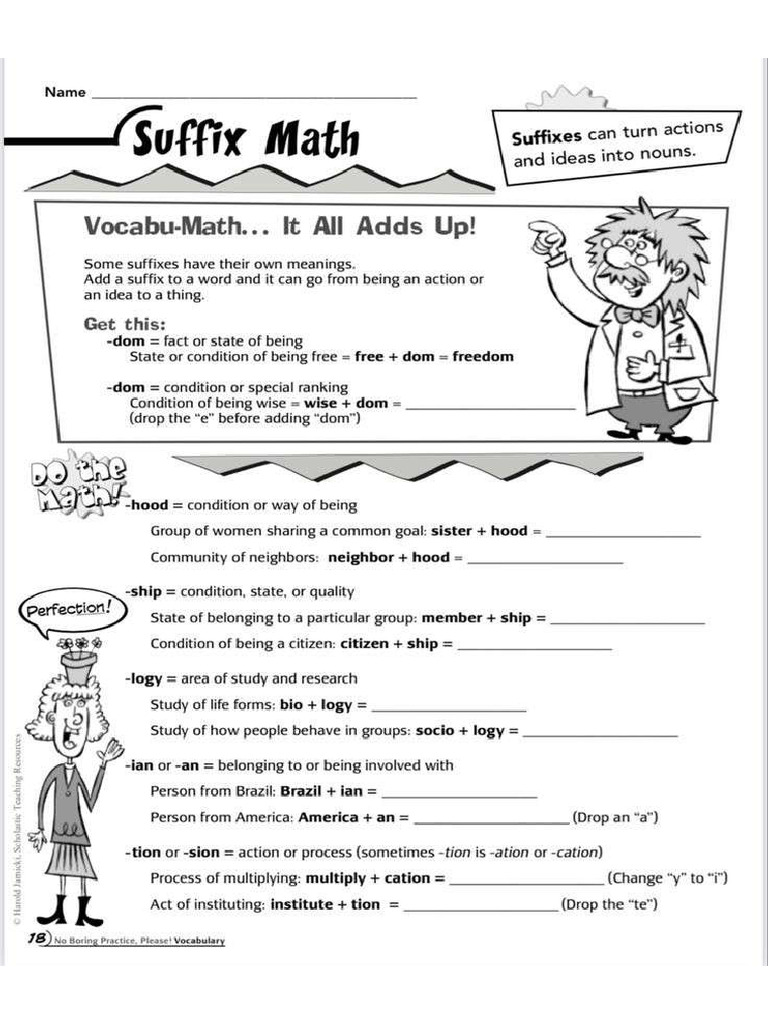 Name ______________________
Suffix Math
Suffixes can turn actions
and ideas into nouns.
Vocabu-Math... It All Adds Up!
Some suffixes have their own meanings.
Add a suffix to a word and it can go from being an action or
an idea to a thing.
Get this:
-dom = fact or state of being
State or condition of being free = free + dom = freedom
-dom = condition or special ranking
Condition of being wise = wise + dom = ______________________
(drop the “e” before adding “dom”)
Do the
Math!
-hood = condition or way of being
Group of women sharing a common goal: sister + hood = ______________________
Community of neighbors: neighbor + hood = ______________________
-ship = condition, state, or quality
State of belonging to a particular group: member + ship = ______________________
Condition of being a citizen: citizen + ship = ______________________
Perfection!
-logy = area of study and research
Study of life forms: bio + logy = ______________________
Study of how people behave in groups: socio + logy = ______________________
-ian or -an = belonging to or being involved with
Person from Brazil: Brazil + ian = ______________________
Person from America: America + an = ______________________ (Drop an “a”)
-tion or -sion = action or process (sometimes -tion is -ation or -cation)
Process of multiplying: multiply + cation = ______________________ (Change “y” to “i”)
Act of instituting: institute + tion = ______________________ (Drop the “te”)
© Harold Jarnicki, Scholastic Teaching Resources
18 No Boring Practice, Please! Vocabulary